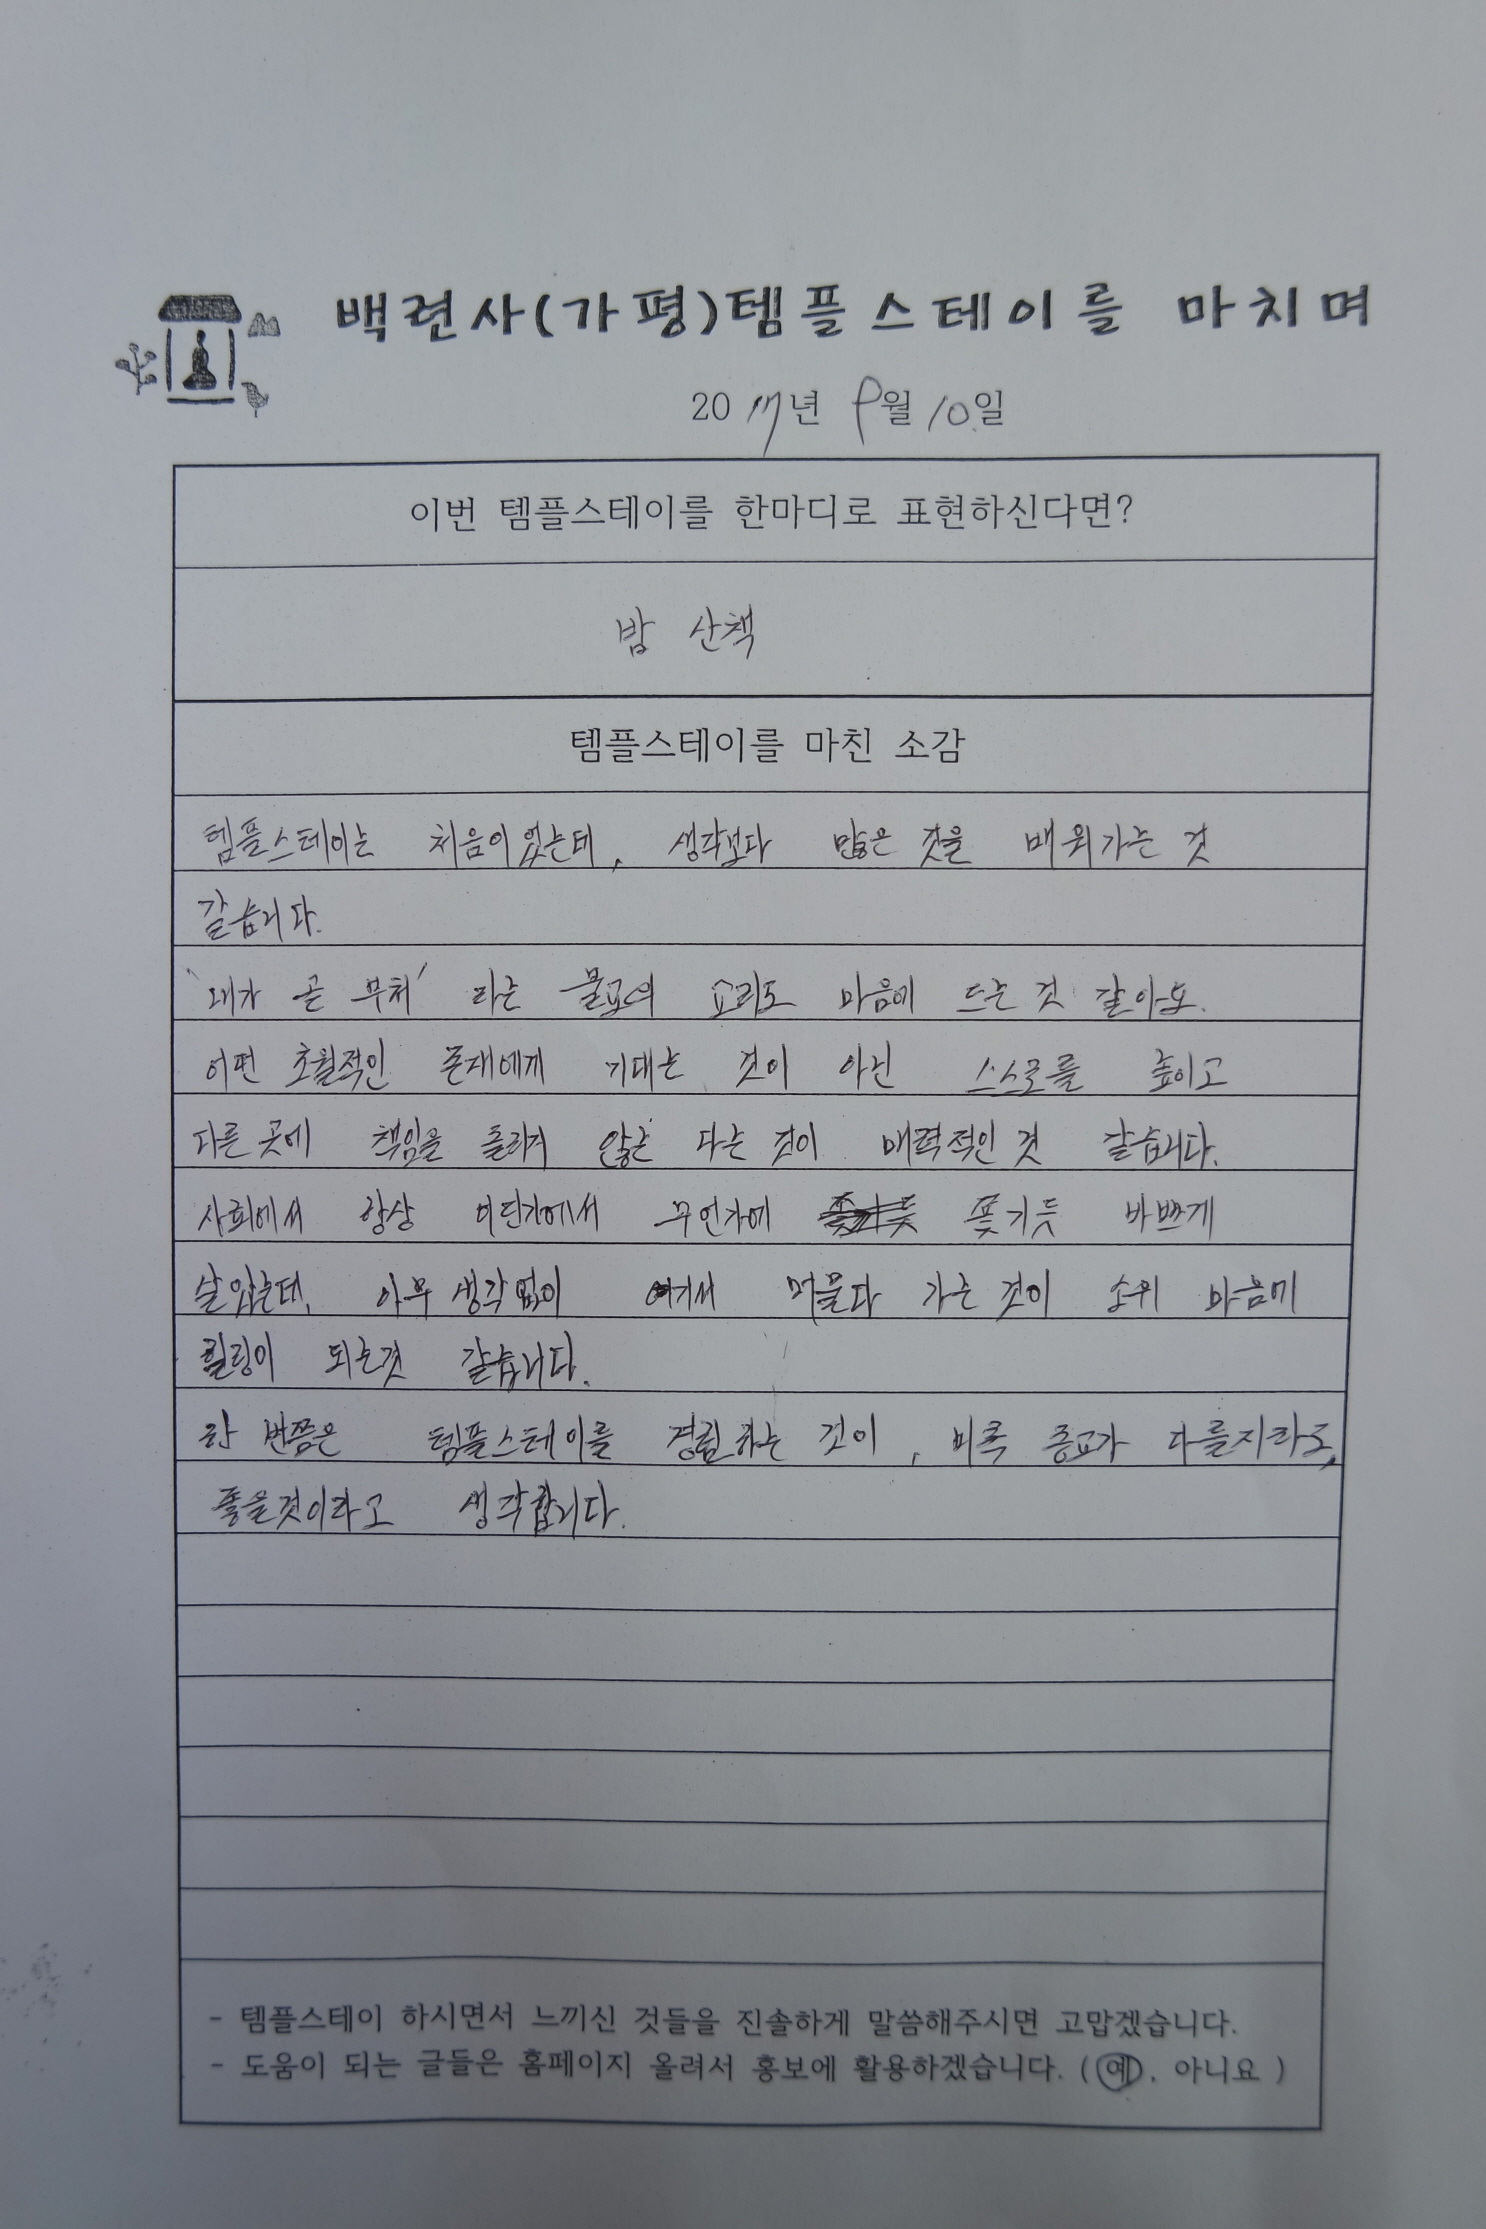 백련사(가평)템플스테이를 마치며
2017년 9월 10일
이번 템플스테이를 한마디로 표현하신다면?
밤 산책
템플스테이를 마친 소감
템플스테이는 처음이었는데, 생각보다 많은 것을 배워가는 것
같습니다.
'내가 곧 부처' 라는 불교의 교리도 마음에 드는 것 같아요.
어떤 초월적인 존재에게 기대는 것이 아닌 스스로를 높이고
다른 곳에 책임을 돌리지 않는 다는 것이 매력적인 것 같습니다.
사회에서 항상 어딘가에서 무언가에 쫓기듯 바쁘게
살았는데, 아무 생각없이 여기서 머물다 가는 것이 소위 마음에
힐링이 되는것 같습니다.
한 번쯤은 템플스테이를 경험하는 것이, 비록 종교가 다를지라도,
좋을것이라고 생각합니다.
- 템플스테이 하시면서 느끼신 것들을 진솔하게 말씀해주시면 고맙겠습니다.
- 도움이 되는 글들은 홈페이지 올려서 홍보에 활용하겠습니다. (예, 아니요 )